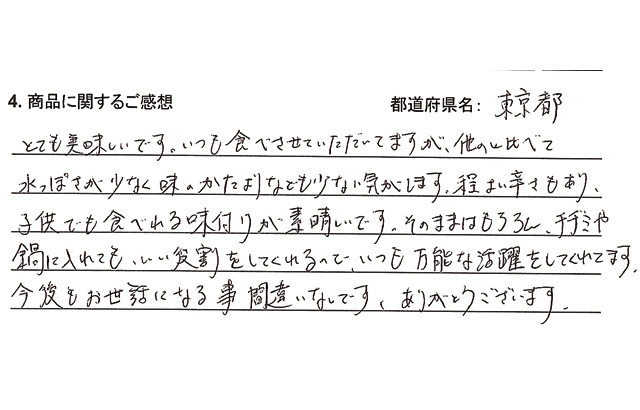 4. 商品に関するご感想 都道府県名: 東京都
とても美味しいです。いつも食べさせていただいてますが、他のと比べて
水っぽさが少なく味のかたよりなども少ない気がします。程よい辛さもあり、
子供でも食べれる味付けが素晴しいです。そのままはもちろん、チヂミや
鍋に入れても、いい役割をしてくれるので、いつも万能な活躍をしてくれてます。
今後もお世話になる事間違いなしです。ありがとうございます。